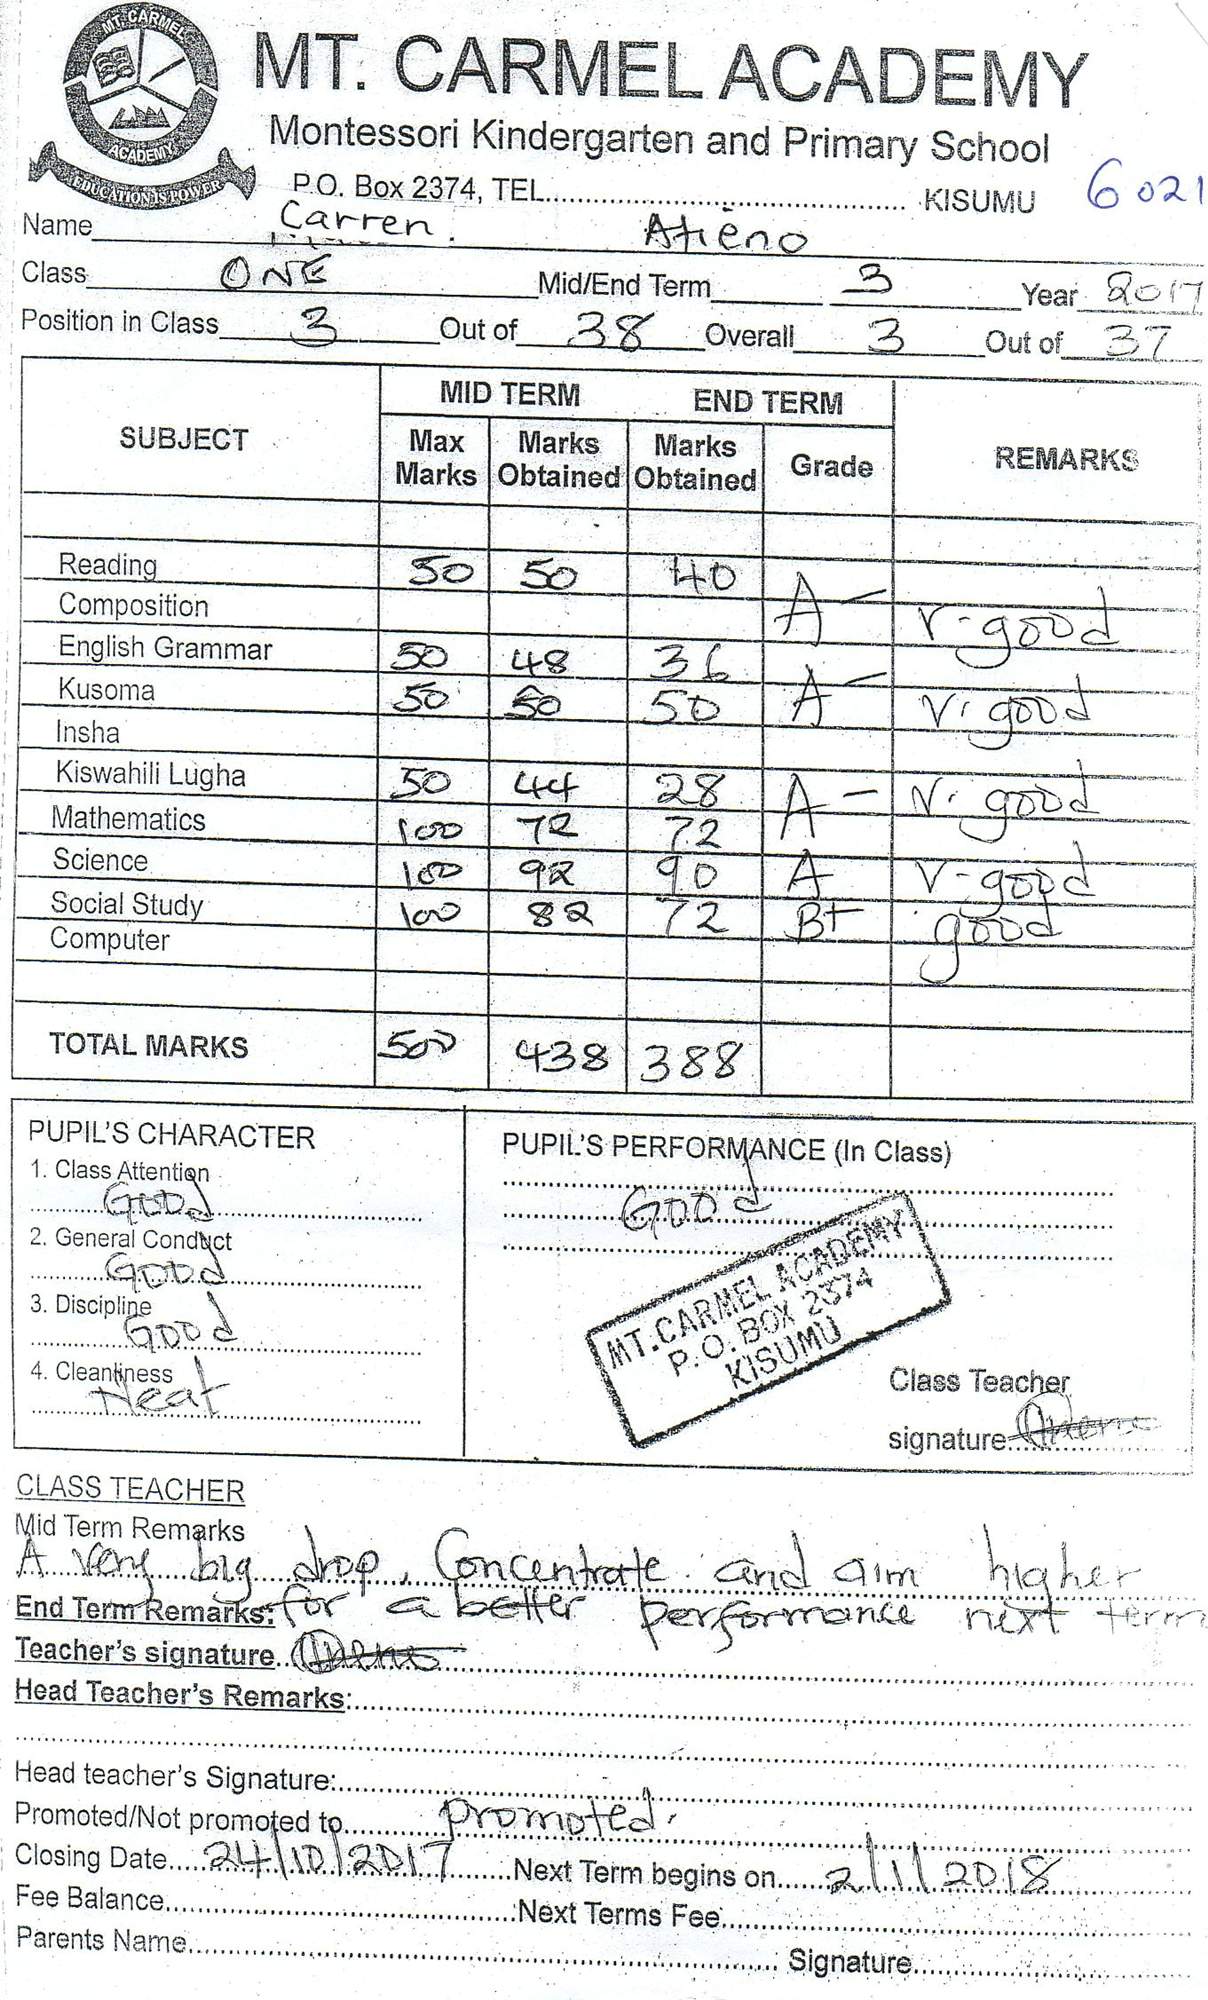 MT. CARMEL
ACADEMY
EDUCATION IS POWER
MT. CARMEL ACADEMY
Montessori Kindergarten and Primary School
P.O. Box 2374, TEL............ KISUMU 6021
Name Carren Atieno
Class ONE Mid/End Term 3 Year 2017
Position in Class 3 Out of 38 Overall 3 Out of 37
SUBJECT MID TERM END TERM REMARKS
Max Marks Marks Obtained Marks Obtained Grade
Reading 50 50 40
Composition A- v-good
English Grammar 50 48 36
Kusoma 50 50 50 A- v. good
Insha
Kiswahili Lugha 50 44 28 A- v. good
Mathematics 100 72 72
Science 100 92 90 A v-good
Social Study 100 82 72 B+ good
Computer
TOTAL MARKS 500 438 388
PUPIL'S CHARACTER
1. Class Attention
Good
2. General Conduct
Good
3. Discipline
Good
4. Cleanliness
Neat
PUPIL'S PERFORMANCE (In Class)
Good
MT. CARMEL ACADEMY
P.O. BOX 2374
KISUMU
Class Teacher
signature
CLASS TEACHER
Mid Term Remarks
A very big drop. Concentrate and aim higher
End Term Remarks: for a better performance next term
Teacher's signature
Head Teacher's Remarks:
Head teacher's Signature:
Promoted/Not promoted to promoted.
Closing Date 24/10/2017 Next Term begins on 2/1/2018
Fee Balance Next Terms Fee
Parents Name Signature